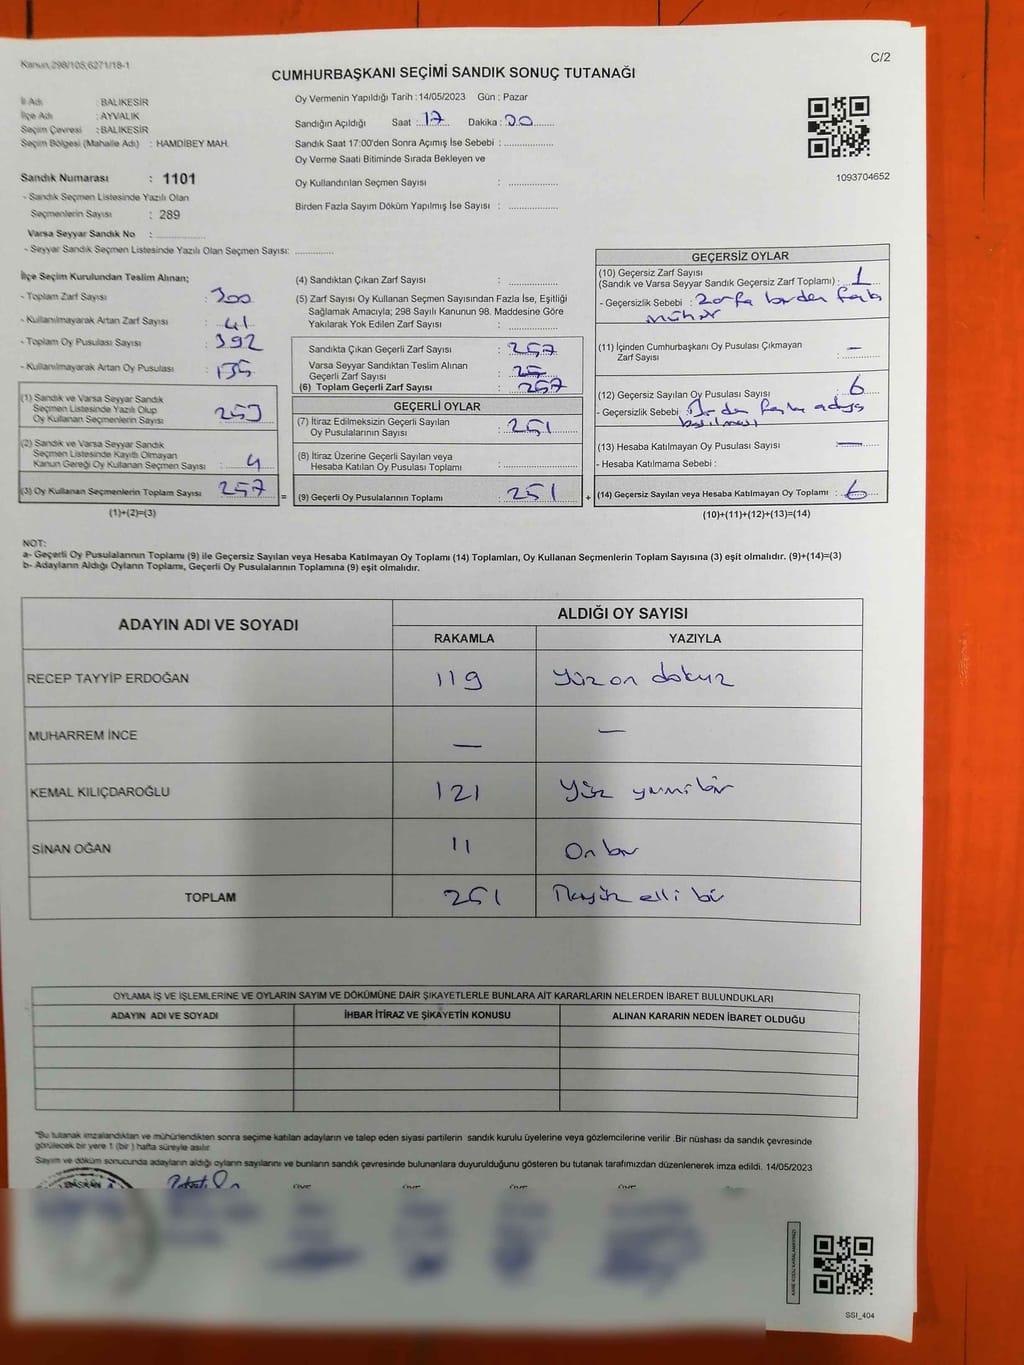 Kanun,298/105,6271/18-1
C/2
CUMHURBAŞKANI SEÇİMİ SANDIK SONUÇ TUTANAĞI
İl Adı : BALIKESİR
İlçe Adı : AYVALIK
Seçim Çevresi : BALIKESİR
Seçim Bölgesi (Mahalle Adı) : HAMDİBEY MAH.
Sandık Numarası : 1101
- Sandık Seçmen Listesinde Yazılı Olan
Seçmenlerin Sayısı : 289
Varsa Seyyar Sandık No :
- Seyyar Sandık Seçmen Listesinde Yazılı Olan Seçmen Sayısı:
Oy Vermenin Yapıldığı Tarih :14/05/2023 Gün : Pazar
Sandığın Açıldığı Saat : 17 Dakika : 00
Sandık Saat 17:00'den Sonra Açımış İse Sebebi :
Oy Verme Saati Bitiminde Sırada Bekleyen ve
Oy Kullandırılan Seçmen Sayısı :
Birden Fazla Sayım Döküm Yapılmış İse Sayısı :
1093704652
İlçe Seçim Kurulundan Teslim Alınan;
- Toplam Zarf Sayısı : 300
- Kullanılmayarak Artan Zarf Sayısı : 41
- Toplam Oy Pusulası Sayısı : 392
- Kullanılmayarak Artan Oy Pusulası : 135
(1) Sandık ve Varsa Seyyar Sandık
Seçmen Listesinde Yazılı Olup
Oy Kullanan Seçmenlerin Sayısı : 253
(2) Sandık ve Varsa Seyyar Sandık
Seçmen Listesinde Kayıtlı Olmayan
Kanun Gereği Oy Kullanan Seçmen Sayısı : 4
(3) Oy Kullanan Seçmenlerin Toplam Sayısı : 257
(1)+(2)=(3)
=
(4) Sandıktan Çıkan Zarf Sayısı :
(5) Zarf Sayısı Oy Kullanan Seçmen Sayısından Fazla İse, Eşitliği
Sağlamak Amacıyla; 298 Sayılı Kanunun 98. Maddesine Göre
Yakılarak Yok Edilen Zarf Sayısı :
Sandıkta Çıkan Geçerli Zarf Sayısı : 257
Varsa Seyyar Sandıktan Teslim Alınan
Geçerli Zarf Sayısı :
(6) Toplam Geçerli Zarf Sayısı : 257
GEÇERLİ OYLAR
(7) İtiraz Edilmeksizin Geçerli Sayılan
Oy Pusulalarının Sayısı : 251
(8) İtiraz Üzerine Geçerli Sayılan veya
Hesaba Katılan Oy Pusulası Toplamı :
(9) Geçerli Oy Pusulalarının Toplamı : 251
+
GEÇERSİZ OYLAR
(10) Geçersiz Zarf Sayısı
(Sandık ve Varsa Seyyar Sandık Geçersiz Zarf Toplamı) : 1
- Geçersizlik Sebebi : Zarfa birden fazla
mühür
(11) İçinden Cumhurbaşkanı Oy Pusulası Çıkmayan
Zarf Sayısı : —
(12) Geçersiz Sayılan Oy Pusulası Sayısı : 6
- Geçersizlik Sebebi : Birden fazla adaya
basılması
(13) Hesaba Katılmayan Oy Pusulası Sayısı : —
- Hesaba Katılmama Sebebi :
(14) Geçersiz Sayılan veya Hesaba Katılmayan Oy Toplamı : 6
(10)+(11)+(12)+(13)=(14)
NOT:
a- Geçerli Oy Pusulalarının Toplamı (9) ile Geçersiz Sayılan veya Hesaba Katılmayan Oy Toplamı (14) Toplamları, Oy Kullanan Seçmenlerin Toplam Sayısına (3) eşit olmalıdır. (9)+(14)=(3)
b- Adayların Aldığı Oyların Toplamı, Geçerli Oy Pusulalarının Toplamına (9) eşit olmalıdır.
ADAYIN ADI VE SOYADI ALDIĞI OY SAYISI
RAKAMLA YAZIYLA
RECEP TAYYİP ERDOĞAN 119 Yüz on dokuz
MUHARREM İNCE — —
KEMAL KILIÇDAROĞLU 121 Yüz yirmi bir
SİNAN OĞAN 11 On bir
TOPLAM 251 İkiyüz elli bir
OYLAMA İŞ VE İŞLEMLERİNE VE OYLARIN SAYIM VE DÖKÜMÜNE DAİR ŞİKAYETLERLE BUNLARA AİT KARARLARIN NELERDEN İBARET BULUNDUKLARI
ADAYIN ADI VE SOYADI İHBAR İTİRAZ VE ŞİKAYETİN KONUSU ALINAN KARARIN NEDEN İBARET OLDUĞU
*Bu tutanak imzalandıktan ve mühürlendikten sonra seçime katılan adayların ve talep eden siyasi partilerin sandık kurulu üyelerine veya gözlemcilerine verilir .Bir nüshası da sandık çevresinde
görülecek bir yere 1 (bir ) hafta süreyle asılır.
Sayım ve döküm sonucunda adayların aldığı oyların sayılarını ve bunların sandık çevresinde bulunanlara duyurulduğunu gösteren bu tutanak tarafımızdan düzenlenerek imza edildi. 14/05/2023
SSI_404